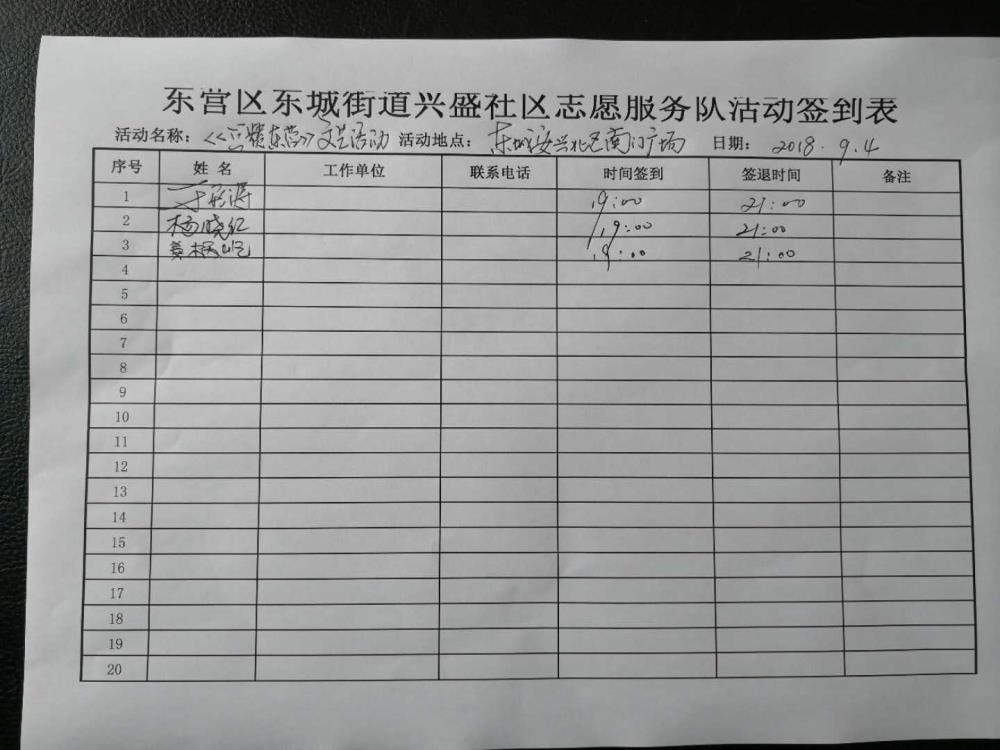 东营区东城街道兴盛社区志愿服务队活动签到表
活动名称：《东营》文艺活动 活动地点：东城安兴北区南门广场 日期：2018.9.4
序号 姓名 工作单位 联系电话 时间签到 签退时间 备注
1 19:00 21:00
2 杨晓红 19:00 21:00
3 19:00 21:00
4
5
6
7
8
9
10
11
12
13
14
15
16
17
18
19
20